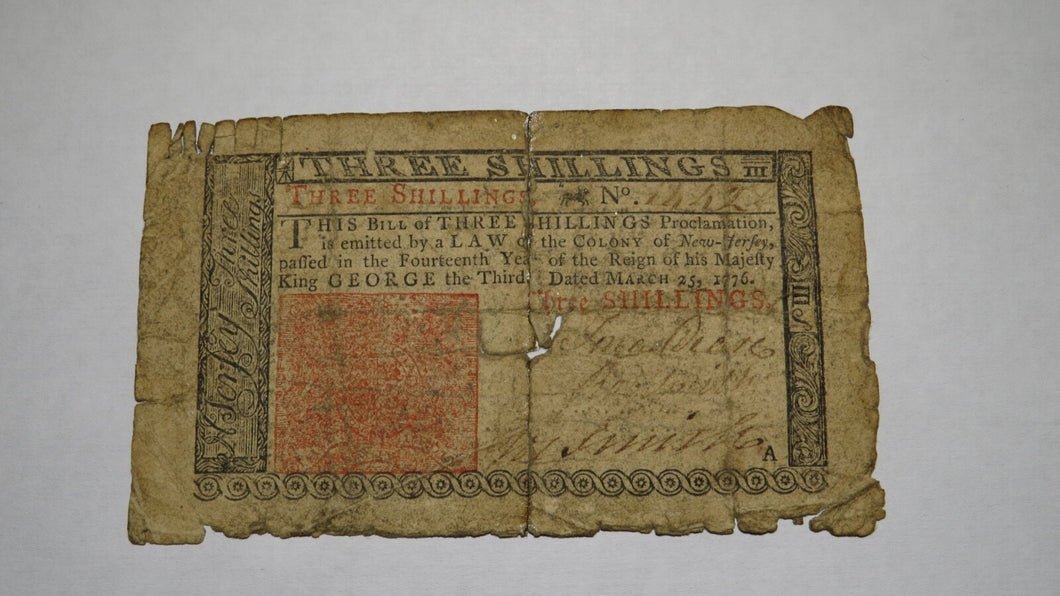 THREE SHILLINGS III
THREE SHILLINGS. No. 1442
THIS BILL of THREE SHILLINGS Proclamation,
is emitted by a LAW of the COLONY of New-Jerſey,
paſſed in the Fourteenth Year of the Reign of his Majeſty
King GEORGE the Third. Dated MARCH 25, 1776.
Three SHILLINGS.
N Jerſey Three
Shillings
III S
A